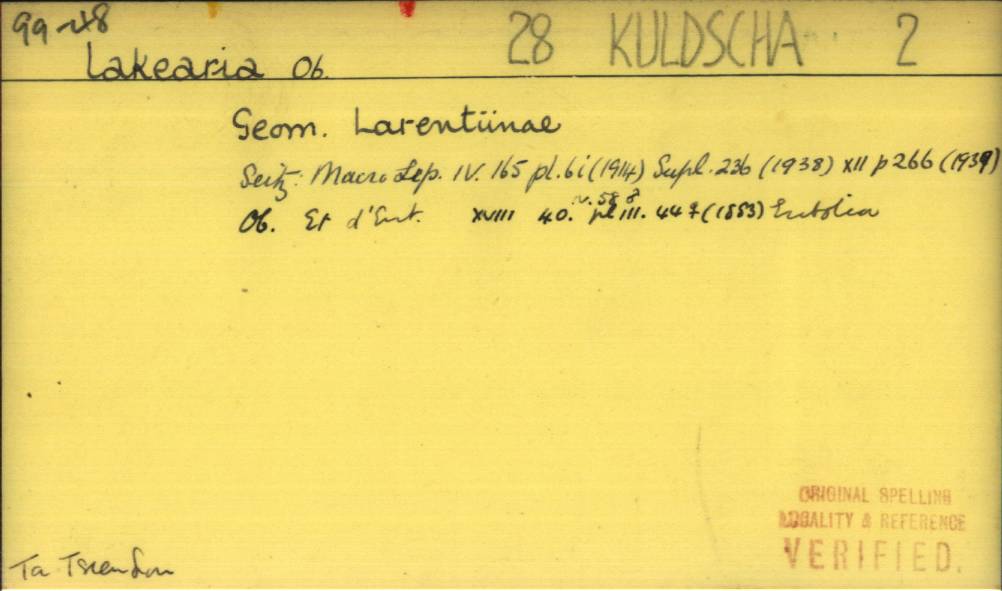 99-48
28 KULDSCHA 2
Lakearia Ob.
Geom. Larentiinae
Seitz: Macro Lep. IV. 165 pl. 6i (1914) Supl. 236 (1938) XII p 266 (1939)
IV. 58 ♂
Ob. Et d'Ent. XVIII 40. pl III. 44 ♀ (1893) Eubolia
ORIGINAL SPELLING
LOCALITY & REFERENCE
VERIFIED.
Ta Tsien Lou